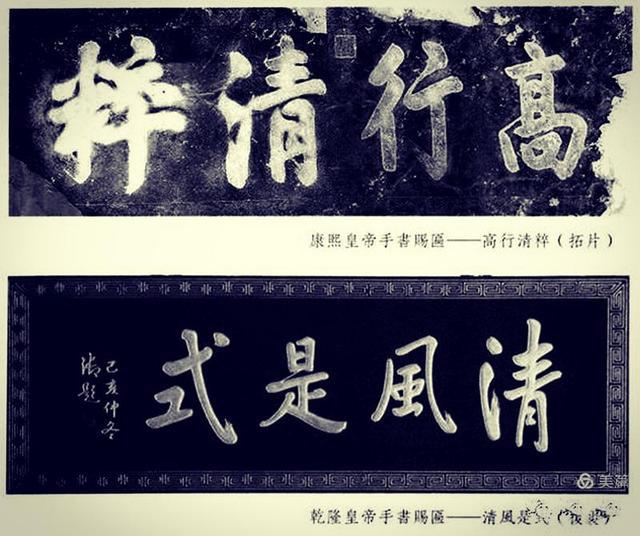 高行清粹
康熙皇帝手書賜匾——高行清粹（拓片）
清風是式
己亥仲冬
御題
乾隆皇帝手書賜匾——清風是式
美篇